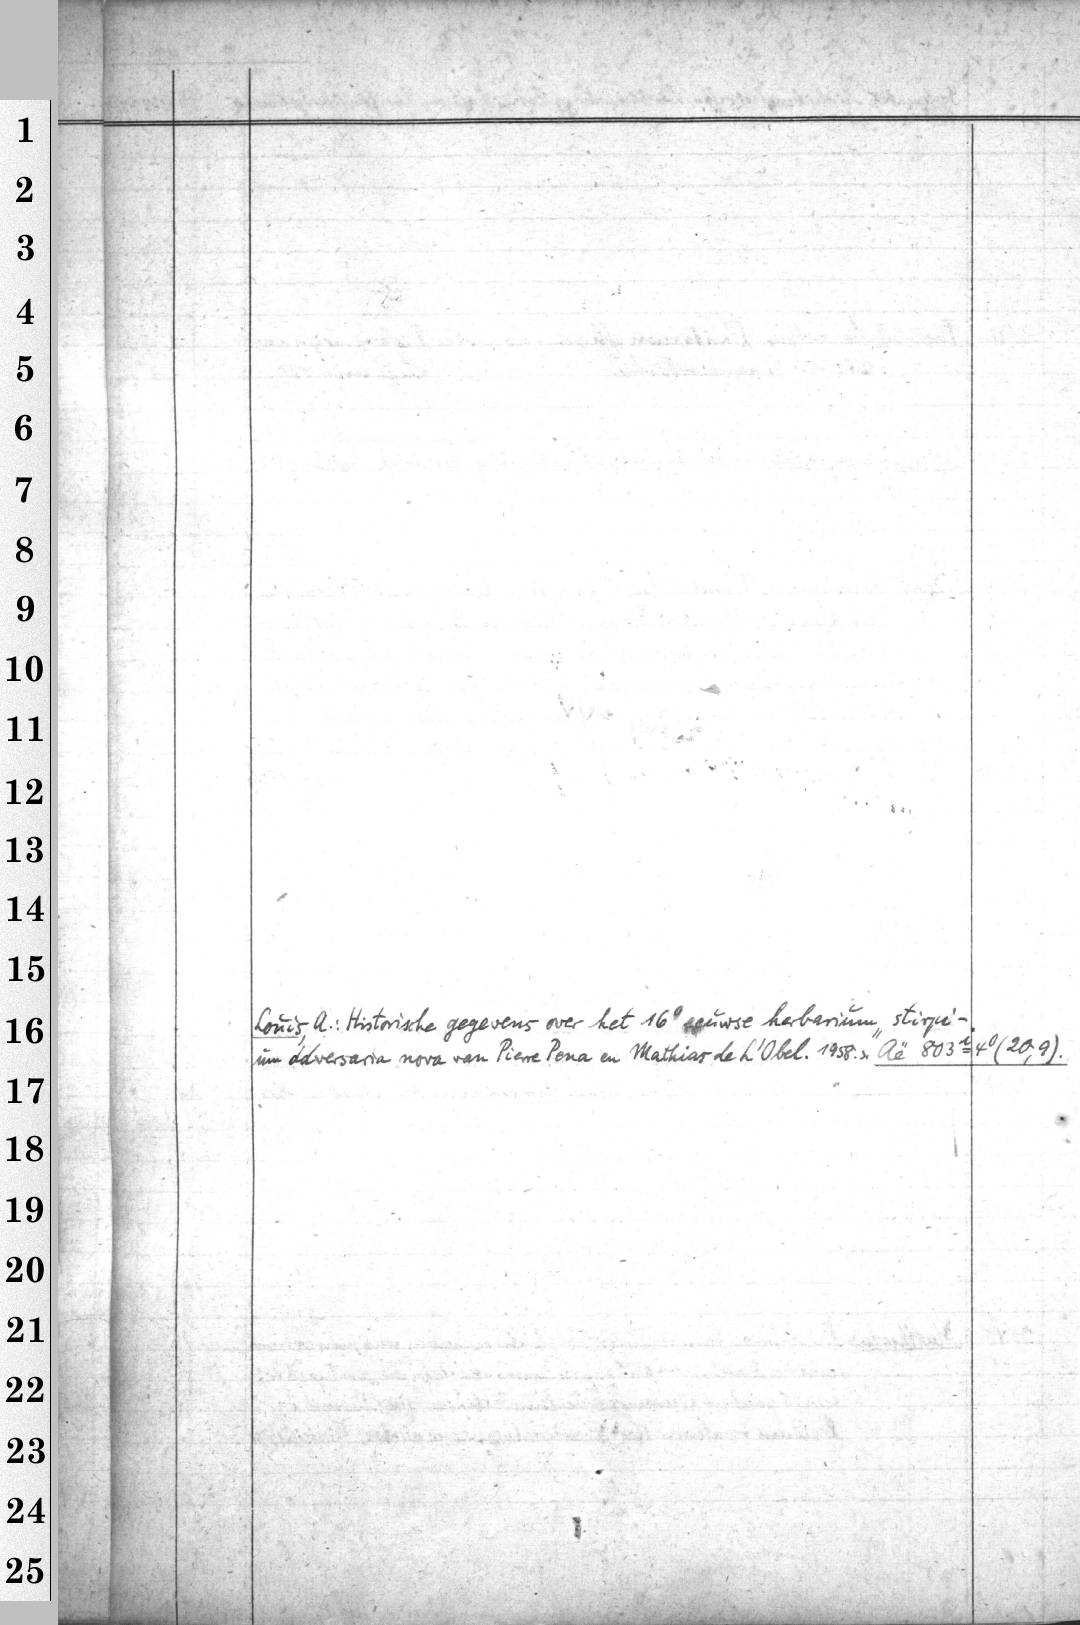 1
2
3
4
5
6
7
8
9
10
11
12
13
14
15
16
Louis, A.: Historische gegevens over het 16e eeuwse herbarium „stirpi-
um adversaria nova van Pierre Pena en Mathias de L'Obel. 1958. Aë 803 i = 4° (20,9).
17
18
19
20
21
22
23
24
25